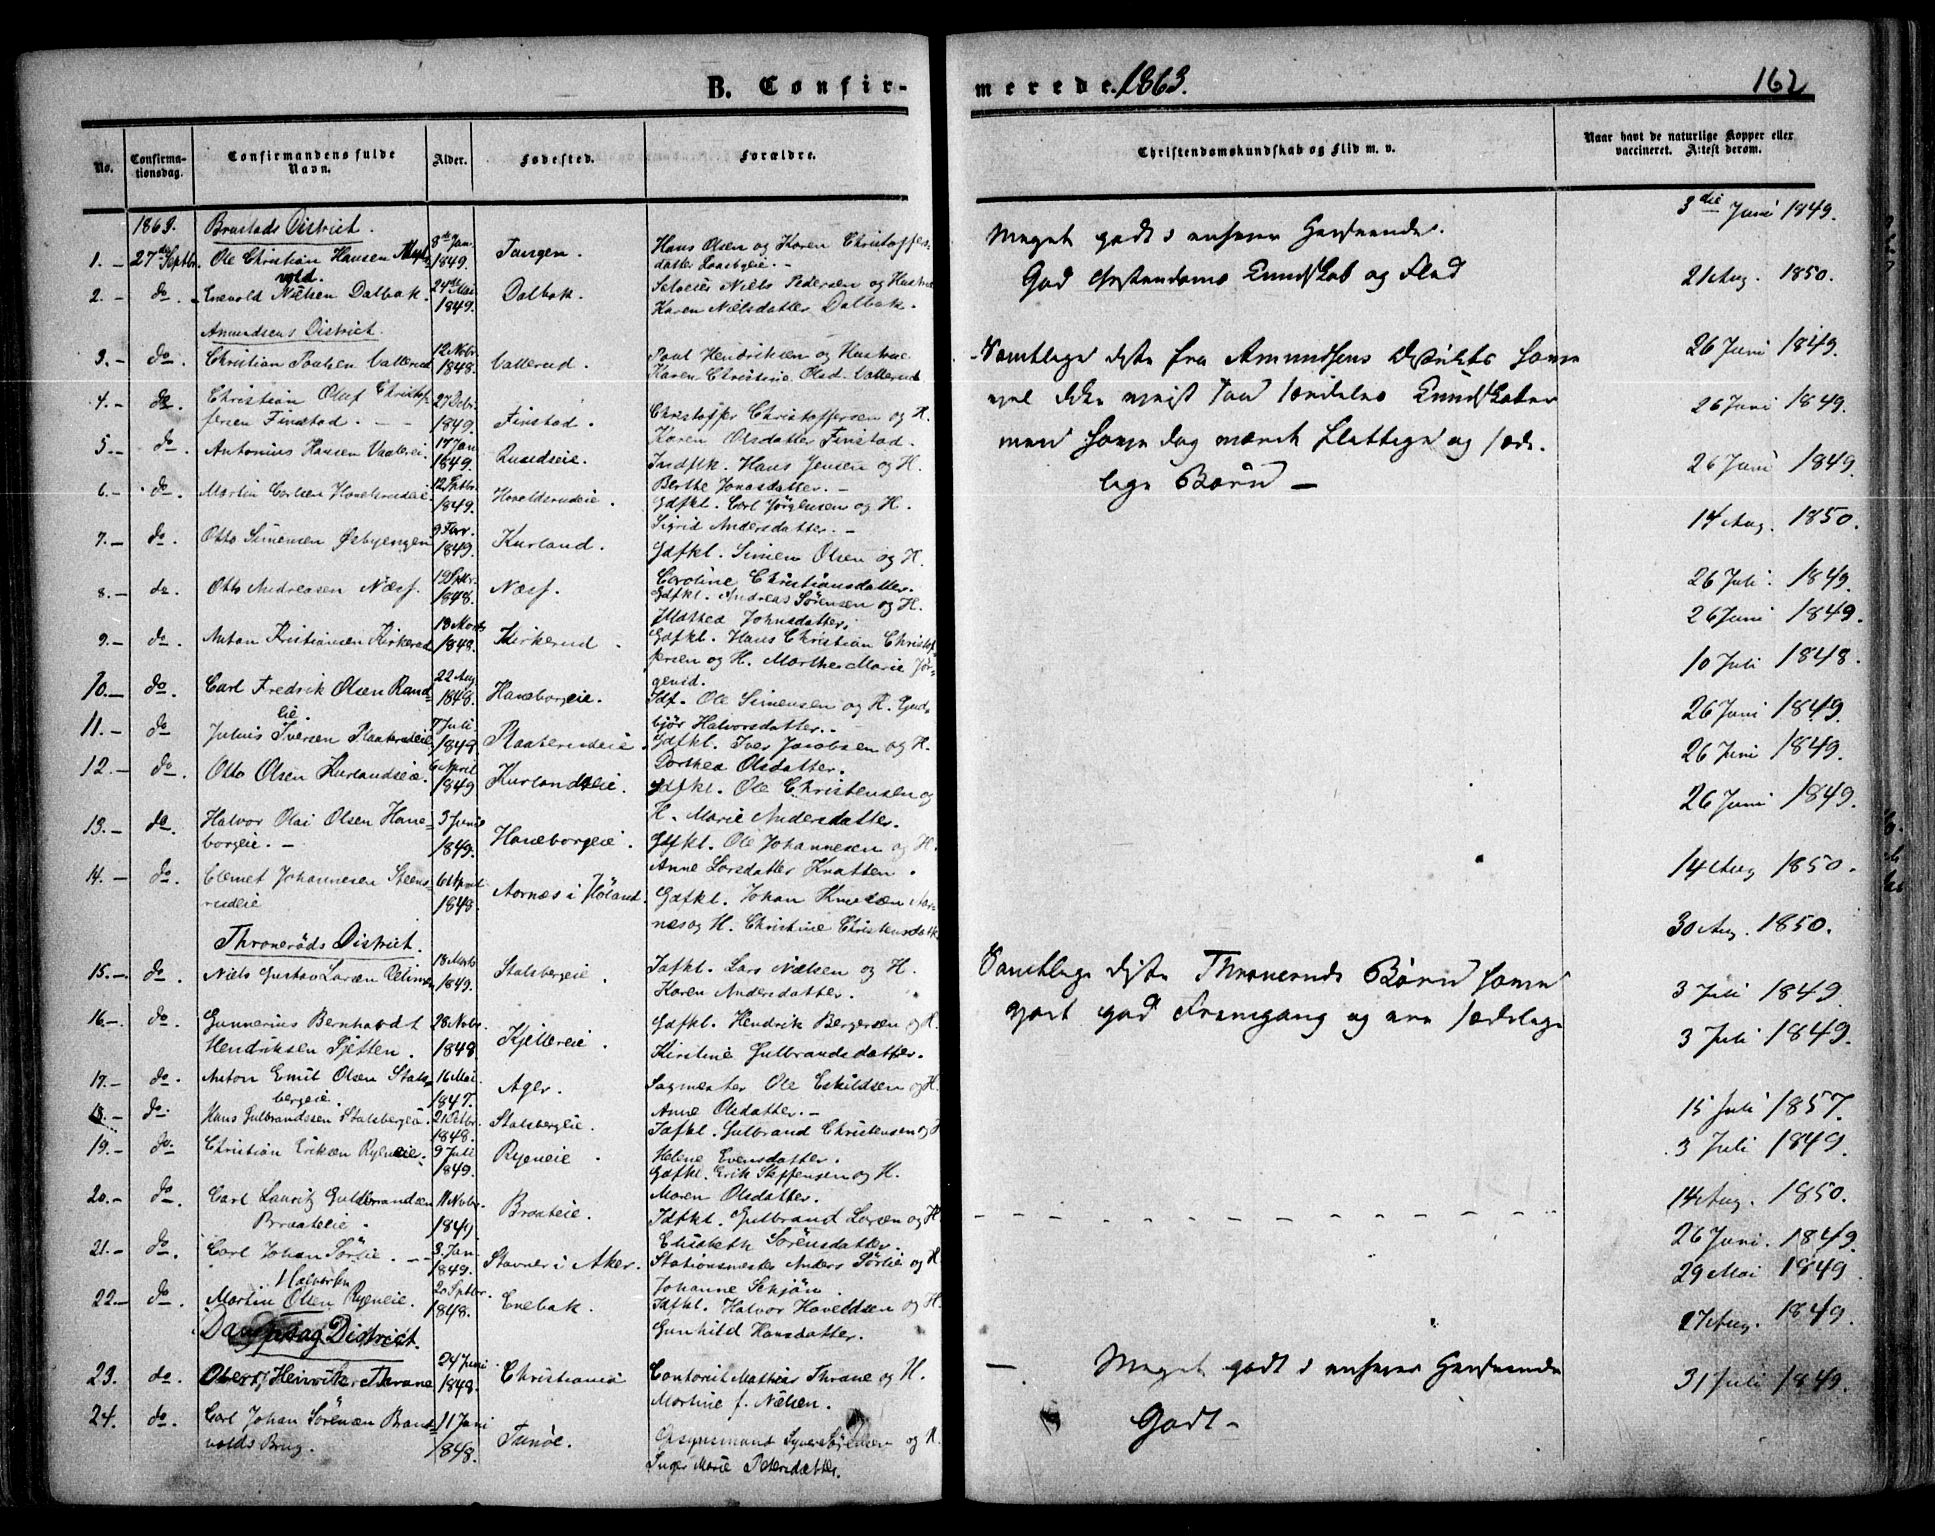 B. Confir-
merede. 1863.
162
No.
Confirma-
tionsdag.
Confirmandens fulde
Navn.
Alder.
Fødested.
Forældre.
Christendomskundskab og Flid m. v.
Naar havt de naturlige Kopper eller
vaccineret. Attest derom.
1863. Brustads District.
1. 27de Septbr. Ole Christian Hansen
vold. 8de Jan. 1849. Tangen. Hans Olsen og Karen Christoffers-
datter
Meget godt i enhver Henseende. 3die Juni 1849.
2. do. Evevold Nielsen Dalbak. 24de Mai 1849. Dalbak. Selveier Niels Pedersen og Hustrue
Karen Nielsdatter Dalbak.
God Christendoms Kundskab og Flid 21 Aug. 1850.
Amundsens District.
3. do. Christian Paulsen Vallerud 12 Novbr. 1848. Vallerud. Paul Hendriksen og Hustrue
Karen Christine Olsd. Vallerud
26 Juni 1849.
Samtlige disse fra Amundsens District have
vel ikke meget særdeles Kundskaber
men have dog været flittige og sæde-
lige Børn —
4. do. Christian Oluf Christof-
fersen Finstad. 27 Debr. 1849. Finstad. Christoffer Christoffersen og H.
Karen Olsdatter Finstad.
26 Juni 1849.
5. do. Antonius Hansen 17 Jan 1849. Indflk. Hans Jensen og H.
Berthe Jonasdatter.
26 Juni 1849.
6. do. Martin Carlsen 12 Sptbr. 1849. Gdfkl. Carl Jørgensen og H.
Sigrid Andersdatter.
14 Aug. 1850.
7. do. Otto Simensen Østbyengen 9 Febr. 1849. Kurland. Gdfkl. Simen Olsen og H.
Caroline Christiansdatter.
26 Juli 1849.
8. do. Otto Andreasen Næss. 12 Sptbr. 1848. Næss. Gdfkl. Andreas Sørensen og H.
Mathea Johnsdatter.
26 Juni 1849.
9. do. Anton Kristiansen Kirkerud 13 Marts 1848. Kirkerud. Gdfkl. Hans Christian Christof-
fersen og H. Marthe Marie Jør-
gensd.
10 Juli 1848.
10. do. Carl Fredrik Olsen Rand-
eie. 22 Aug 1848. Haneborgeie. Idf. Ole Simensen og H. Gud-
bjør Halvorsdatter.
26 Juni 1849.
11. do Julius Iversen Plaaterudeie 7 Juli 1848. Plaaterudeie. Gdfkl. Iver Jacobsen og H.
Dorthea Olsdatter.
26 Juni 1849.
12. do. Otto Olsen Kurlandseie. 6 April 1849 Kurlandseie. Gdfkl. Ole Christensen og
H. Marie Andersdatter.
26 Juni 1849.
13. do. Halvor Olai Olsen Hane-
borgeie. 3 Junie 1849. Haneborgeie. Gdfkl. Ole Johannesen og H.
Anne Larsdatter Knatten.
14 Aug 1850.
14. do. Clemet Johannesen Steens-
rudeie 6 April 1848. Aarnæs i Høland. Gdfkl. Johan Knudsen Aar-
næs og H. Christine Christensdatter
30 Aug. 1850.
Thronerøds District.
15. do. Niels Gustav Larsen 13 Marts 1849. Stalsbergeie. Idfkl. Lars Nielsen og H.
Karen Andersdatter.
3 Juli 1849.
Samtlige disse Thronerøds Børn have
gjort god Fremgang og ere sædelige
16. do. Gunnerius Bernhardt
Hendriksen Tjetten. 28 Novbr. 1848 Kjellereie. Gdfkl. Hendrik Bergersen og H.
Kirstine Gulbrandsdatter.
3 Juli 1849.
17. do. Anton Emil Olsen Stals-
bergeie. 16 Mai 1847. Ager. Sagmester Ole Eskildsen og H.
Anne Olsdatter.
15 Juli 1857.
18. do. Hans Gulbrandsen Stalsbergeie. 21 Octbr. 1848. Stalsbergeie. Idfkl. Gulbrand Christensen og H
Helene Evensdatter.
3 Juli 1849.
19. do. Christian Eriksen Ryeneie. 9 Juli 1849. Ryeneie. Gdfkl. Erik Steffensen og H.
Maren Olsdatter.
14 Aug. 1850.
20. do. Carl Lauritz Gulbrandsen
Braateeie. 11 Novbr. 1849. Braateie. Idfkl. Gulbrand Larsen og H
Elisabeth Sørensdatter.
26 Juni. 1849.
21. do. Carl Johan Sørlie. 3 Jan 1849. Stavner i Aker. Stationsmester Anders Sørlie og H
Johanne Schjøn.
29 Mai 1849.
22. do. Martin Olsen Halvorsen Ryeneie. 20 Sptbr. 1848. Enebak. Idfkl. Halvor Haveldsen og H.
Gunhild Hansdatter.
27 Aug. 1849.
District.
23. do. Obert Heinrik Thrane 24 Juni 1848. Christiania Contorist Mathias Thrane og H.
Martine f. Nielsen.
Meget godt i enhver Henseende 31 Juli 1849.
24. do. Carl Johan Sørensen Brand-
volds Brug. 11 Juni 1848. Tunøe. Opsynsmand Syver Sørensen og H.
Inger Marie Petersdatter.
Godt —